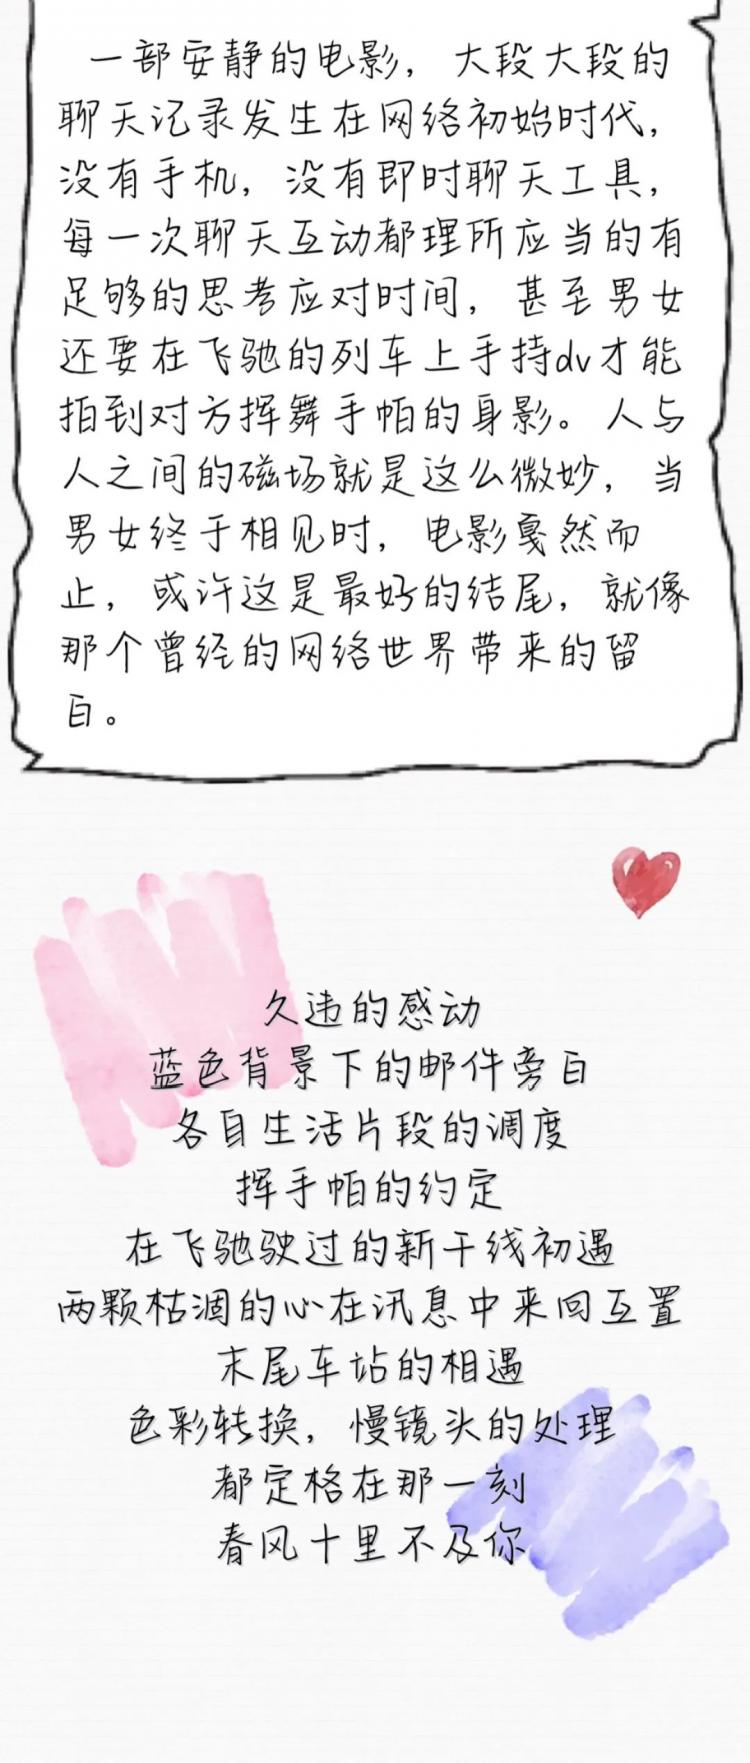 一部安静的电影，大段大段的
聊天记录发生在网络初始时代，
没有手机，没有即时聊天工具，
每一次聊天互动都理所应当的有
足够的思考应对时间，甚至男女
还要在飞驰的列车上手持dv才能
拍到对方挥舞手帕的身影。人与
人之间的磁场就是这么微妙，当
男女终于相见时，电影戛然而
止，或许这是最好的结尾，就像
那个曾经的网络世界带来的留
白。
久违的感动
蓝色背景下的邮件旁白
各自生活片段的调度
挥手帕的约定
在飞驰驶过的新干线初遇
两颗枯涸的心在讯息中来回互置
末尾车站的相遇
色彩转换，慢镜头的处理
都定格在那一刻
春风十里不及你